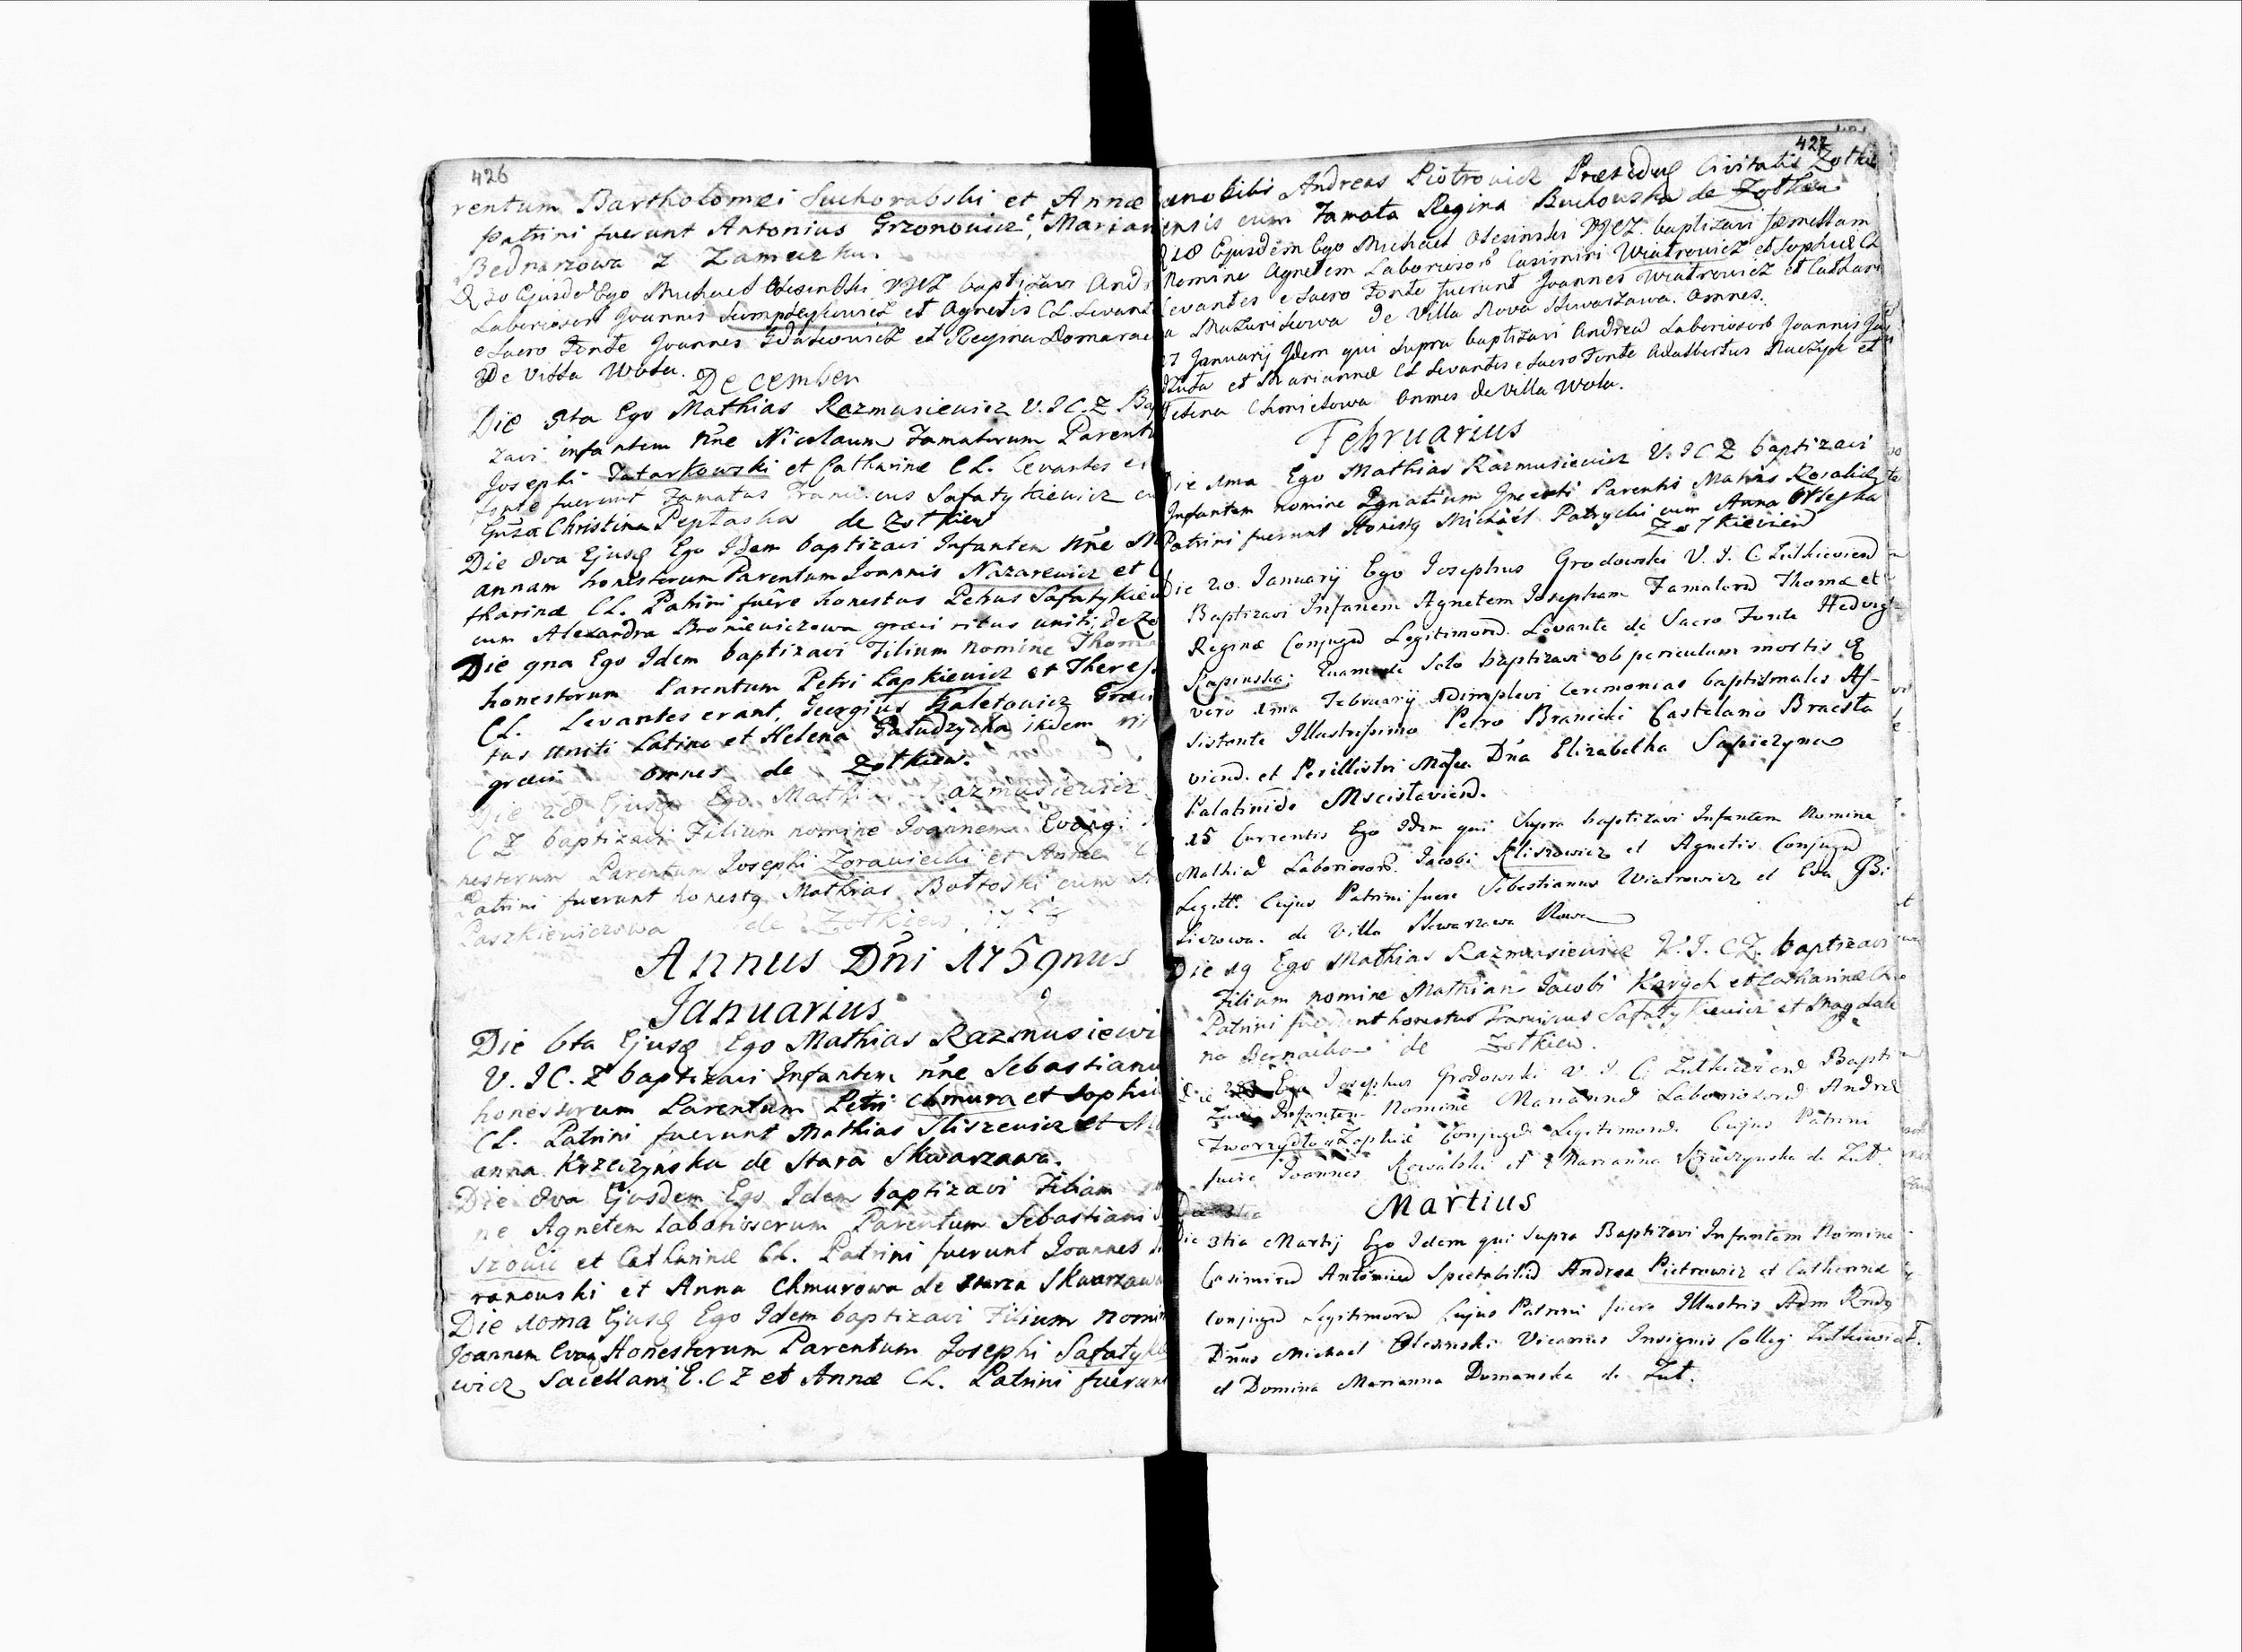 426
rentum Bartholomæi Suchorabski et Annæ
Patrini fuerunt Antonius Grzonowicz et Marian
Bednarzowa z Zameczku.
Laboriosorū Joannis et Agnetis CL. Levant
e Sacro Fonte Joannes et Regina
De Villa Wola.
December
Die 5ta Ego Mathias Razmusiewicz V. I C. Z Ba
zavi infantem nn̄e Nicolaum Famatorum Parent
Josephi Tatarkowski et Catharinæ CL. Levantes e
fonte fuerunt Famatus Franciscus Safatykiewicz cu
Christina Peptaska de Zotkiew
Die 8va Ejusq Ego Idem baptizavi Infantem nn̄e M
annam honestorum Parentum Joannis Nazarewicz et C
tharinæ CL. Patrini fuêre honestus Petrus Safatykiew
cum Alexandra Broniewiczowa græci ritus uniti, de Zo
Die 9na Ego Idem baptizavi Filium nomine Thom
honestorum Parentum Petri Lapkiewicz et Theres
CL. Levantes erant, Georgius Galetowicz Græ
tus uniti Latina et Helena Gatudzycka ikdem ri
græci omnes de Zotkiew.
Die 28 Ejusq Ego Mathi Razmusiewicz
C Z baptizavi Filium nomine Joannem Evang:
nestorum Parentum Josephi Zorawiecki et Annæ C
Patrini fuerunt honestq Mathias Botroski cum
Paszkiewiczowa de Zotkiew
Annus Dn̄i 1759nus
Januarius
Die 6ta Ejusq Ego Mathias Razmusiewi
V. I C. Z baptizavi Infantem nn̄e Sebastianu
honestorum Parentum Petri Chmura et Sophi
CL. Patrini fuerunt Mathias Iliszewicz et M
anna Krzeczynska de Stara Skwarzawa.
Die 8va Ejusdem Ego Idem baptizavi Filiam
ne Agnetem laboriosorum Parentum Sebastiani
et Catharinæ CL. Patrini fuerunt Joannes
ranowski et Anna Chmurowa de Starza Skwarzaw
Die 10ma Ejusq Ego Idem baptizavi Filium nomi
Joannem Evang Honestorum Parentum Josephi Safatyk
wicz Sacellani E. C Z et Annæ CL. Patrini fuerun
427
Andreas Piotrowicz Præsidus Civitatis Zotki
ensis cum Famata Regina Buchowska de Zotkiew
D 18 Ejusdem Ego Michael Olesinski VICZ. baptizavi fæmellam
Nomine Agnetem Laboriosorū Casimiri Wiatrowicz et Sophiæ CL
Levantes e Sacro Fonte fuerunt Joannes Wiatrowicz et Cathari
a Mazurikowa de Villa Nova Skwarzawa. Omnes.
27 Januarij Idem qui supra baptizavi Andreā Laboriosorū Joannis
et Mariannæ CL Levantes e Sacro Fonte Adalbertus et
Omnes de Villa Wola.
Februarius
Die 1ma Ego Mathias Razmusiewicz V. I C Z baptizavi
Infantem nomine Ignatium Incerti Parentis Matris Rosaliæ
Patrini fuerunt Honestq Michaël Patrycki cum Anna
Zotkiewien
Die 20. Januarij Ego Josephus Grodowski V. I. C. Zulkieviend
Baptizavi Infanem Agnetem Josepham Famatord Thomæ et
Reginæ Conjugd Legitimord. Levante de Sacro Fonte Hedvig
Rapinska: solo baptizavi ob periculum mortis &
vero 1ma Februarij Adimplevi Ceremonias baptismales As-
sistente Illustrissimo Petro Branicki Castelano Bracsla
viend. et Perillistri Dn̄a Elizabetha Sapiezyna
Palatinide Mscislaviend.
15 Currentis Ego Idem qui Supra baptizavi Infantem Nomine
Mathiad Laboriosord. Jacobi Kliszowicz et Agnetis Conjugd
Legitt. Cujus Patrini fuere Sebestianus Wiatrowicz et Eva Bi
liczowa. de Villa Skwarzawa Nowa
Die 19 Ego Mathias Razmusiewicz V. I. CZ. baptizavi
Filium nomine Mathian Jacobi Karych et Catharinæ CL
Patrini fuerunt honestus Franciscus Safatykiewicz et Magdale
na Bernacka de Zotkiew.
Die Ego Josephus Grodowski V. I C. Zulkieviend Bapti
zavi Infantem Nomine Mariannd Laboriosord Andreæ
Tworzydto Zophiæ Conjugd Legitimord. Cujus Patrini
fuere Joannes Kowalski et Marianna Krzeczynska de Zul.
Martius
Die 3tia Martij Ego Idem qui Supra Baptizavi Infantem Nomine
Casimird Antoniud Spectabilid Andrea Pietrowicz et Catherinæ
Conjugd Legitimord Cujus Patrini fuere Illustris Adm Rndq
Dn̄us Michael Olesinski Vicarius Insignis Collegi Zulkievie
et Domina Marianna Domanska de Zul.